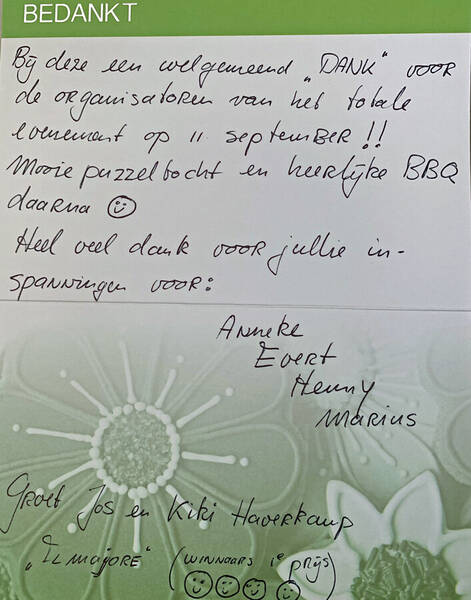 BEDANKT
Bij deze een welgemeend „DANK" voor
de organisatoren van het totale
evenement op 11 september!!
Mooie puzzeltocht en heerlijke BBQ
daarna ☺
Heel veel dank voor jullie in-
spanningen voor:
Anneke
Evert
Henny
Marius
Groet Jos en Kiki Haverkamp
„Il majore" (winnaars 1e prijs)
☺☺☺☺